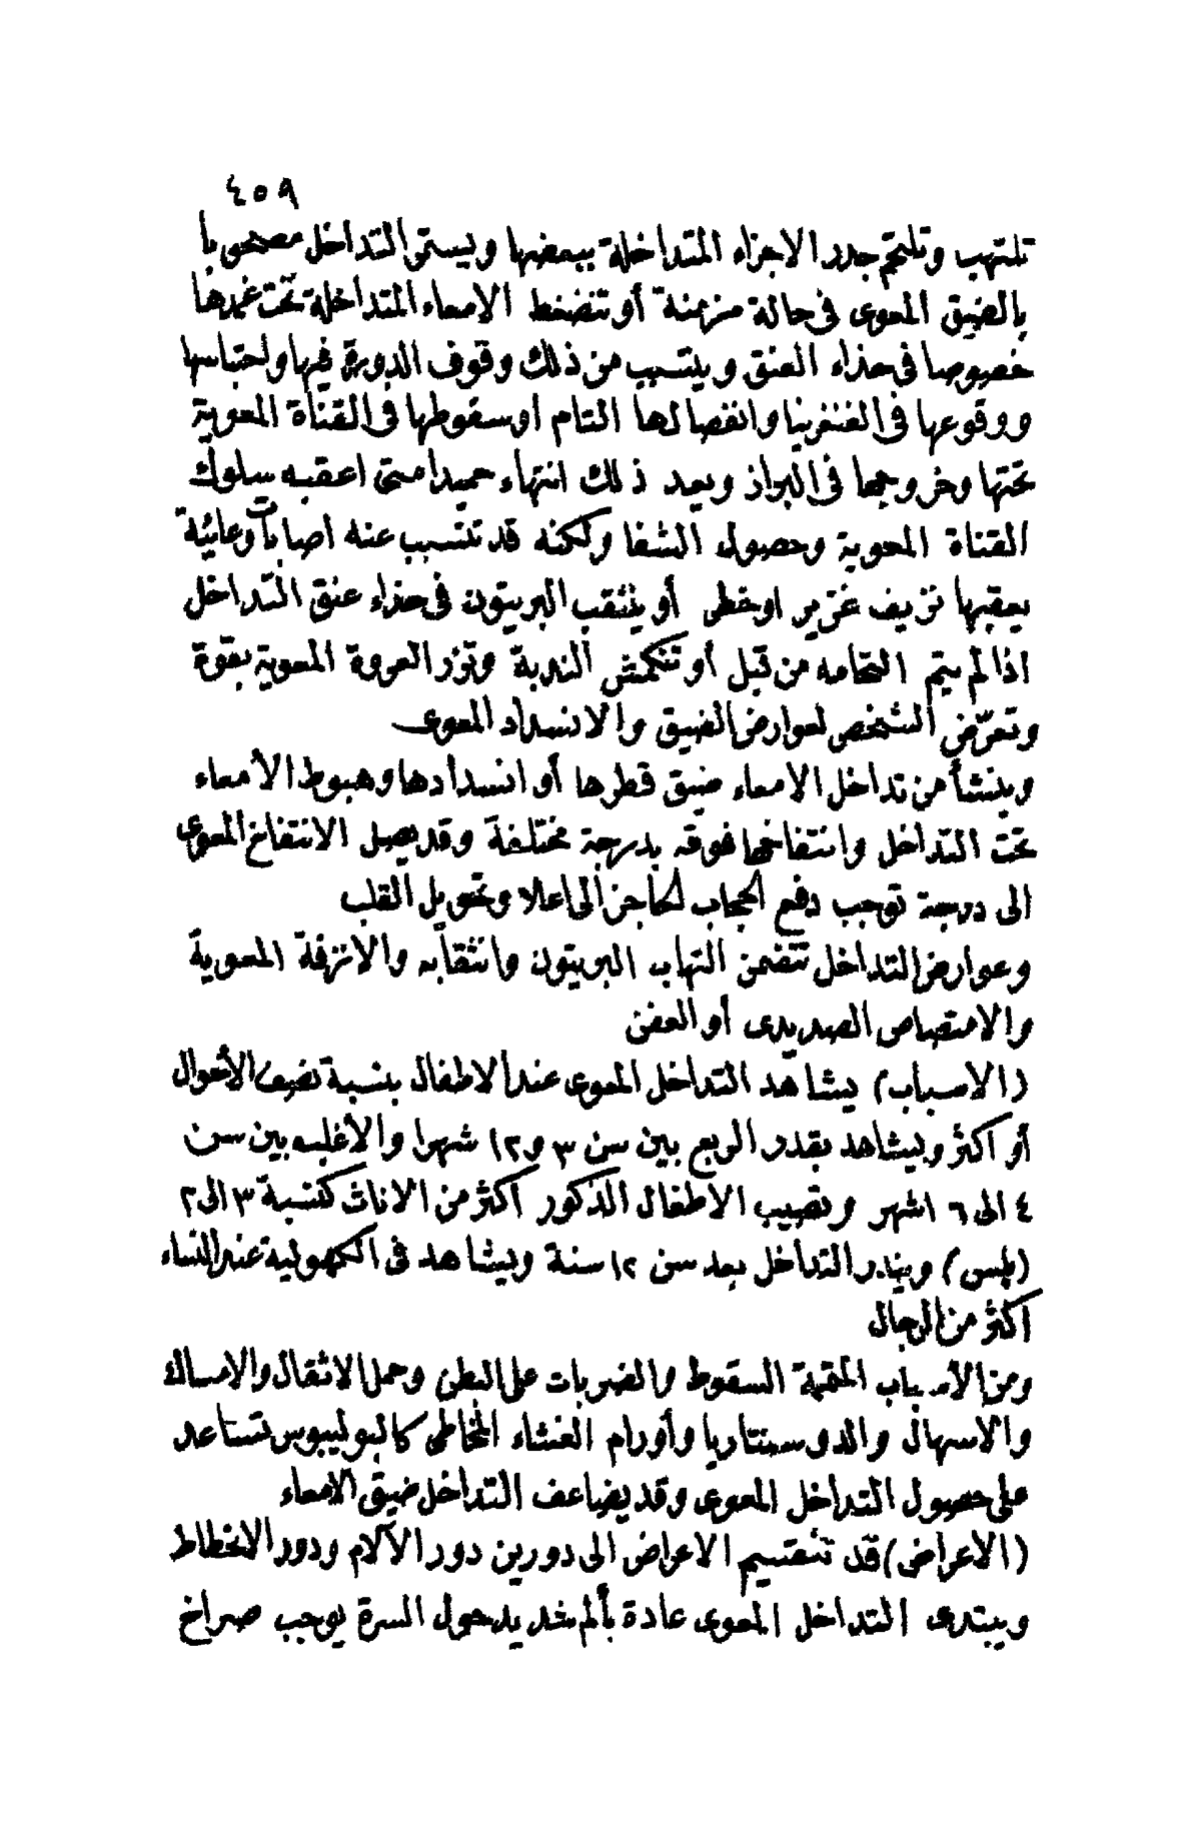 ٤٥٩
تلتهب وتلتحم جدر الاجزاء المتداخلة ببعضها ويستمر التداخل مصحوبا
بالضيق المعوى فى حالة مزمنة أو تنضغط الامعاء المتداخلة تحت غمدها
خصوصا فى حذاء العنق ويتسبب من ذلك وقوف الدورة فيها واحتباسها
ووقوعها فى الغنغرينا وانفصالها التام أو سقوطها فى القناة المعوية
تحتها وخروجها فى البراز ويعد ذلك انتهاء حميدا متى اعقبه سلوك
القناة المعوية وحصول الشفا ولكنه قد تتسبب عنه اصابات وعائية
يعقبها نزيف غزير او خطر أو ينثقب البريتون فى حذاء عنق التداخل
اذا لم يتم التحامه من قبل أو تنكمش الندبة وتزر العروة المعوية بقوة
وتعرّض الشخص لعوارض الضيق والانسداد المعوى
وينشأ من تداخل الامعاء ضيق قطرها أو انسدادها وهبوط الأمعاء
تحت التداخل وانتفاخها فوقه بدرجة مختلفة وقد يصل الانتفاخ المعوى
الى درجة توجب دفع الحجاب الحاجز الى اعلا وتحويل القلب
وعوارض التداخل تتضمن التهاب البريتون وانثقابه والانزفة المعوية
والامتصاص الصديدى أو العفن
(الاسباب) يشاهد التداخل المعوى عند الاطفال بنسبة نصف الأحوال
أو اكثر ويشاهد بقدر الربع بين سن ٣ و١٢ شهرا والأغلب بين سن
٤ الى ٦ اشهر ويصيب الاطفال الذكور اكثر من الاناث كنسبة ٣ الى ٢
(پلس) ويندر التداخل بعد سن ١٢ سنة ويشاهد فى الكهولية عند النساء
اكثر من الرجال
ومن الأسباب المتممة السقوط والضربات على البطن وحمل الاثقال والامساك
والاسهال والدوسنتاريا وأورام الغشاء المخاطى كالبوليبوس تساعد
على حصول التداخل المعوى وقد يضاعف التداخل ضيق الامعاء
(الاعراض) قد تنقسيم الاعراض الى دورين دور الآلام ودور الانحطاط
ويبتدى التداخل المعوى عادة بألم شديد حول السرة يوجب صراخ